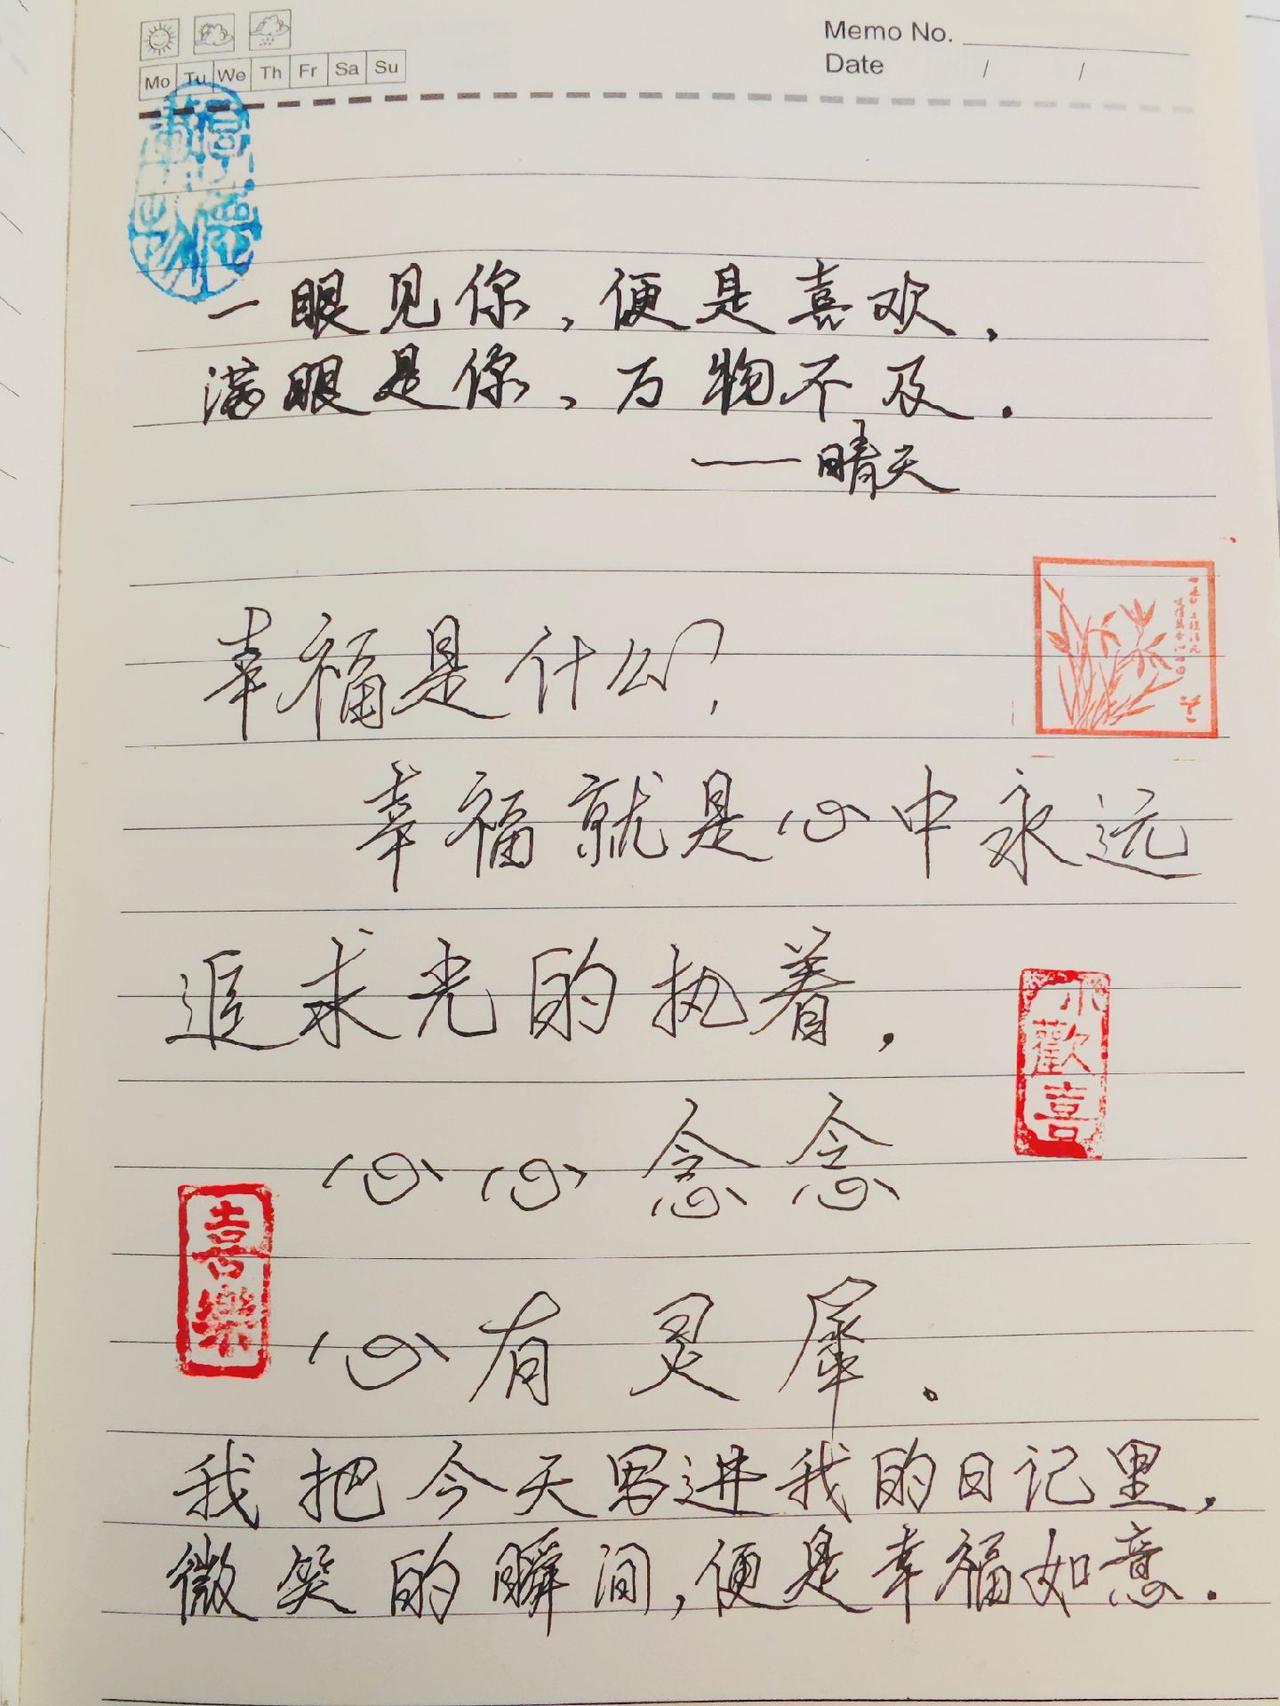 Memo No.
Mo Tu We Th Fr Sa Su
Date / /
一眼见你，便是喜欢，
满眼是你，万物不及．
——晴天
幸福是什么？
幸福就是心中永远
追求光的执着，
小歡喜
心心念念
喜樂
心有灵犀．
我把今天写进我的日记里，
微笑的瞬间，便是幸福如意．